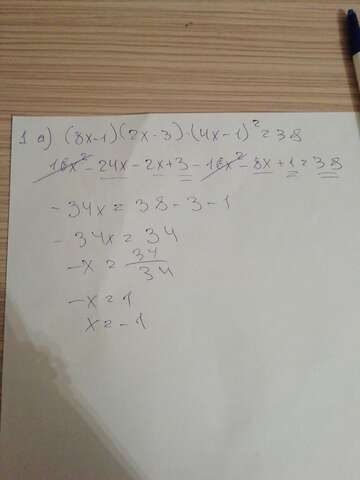 1 a) (8x-1)(2x-3)-(4x-1)²=38
16x²-24x-2x+3-16x²-8x+1=38
-34x=38-3-1
-34x=34
-x=34/34
-x=1
x=-1